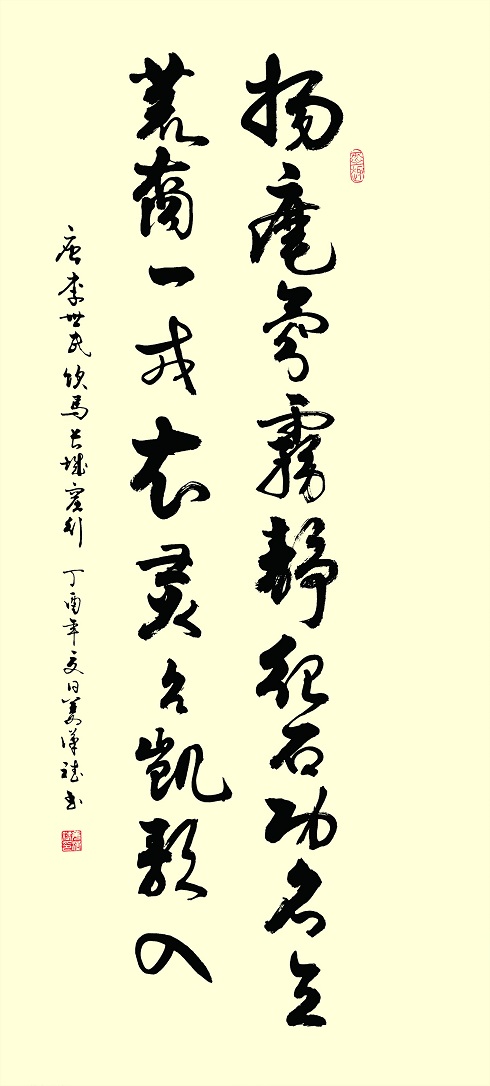 扬麾氛霧静纪石功名立
荒裔一戎衣灵台凯歌入
唐李世民饮馬长城窟行 丁酉年夏日姜书